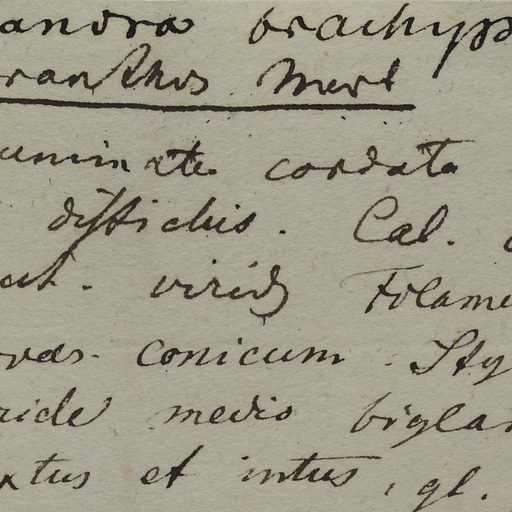 andra brachyp
ranthos Mart
uminate cordata
distichis. Cal.
viridis Filame
conicum. Sty
ride medio biglan
xtus et intus, gl.